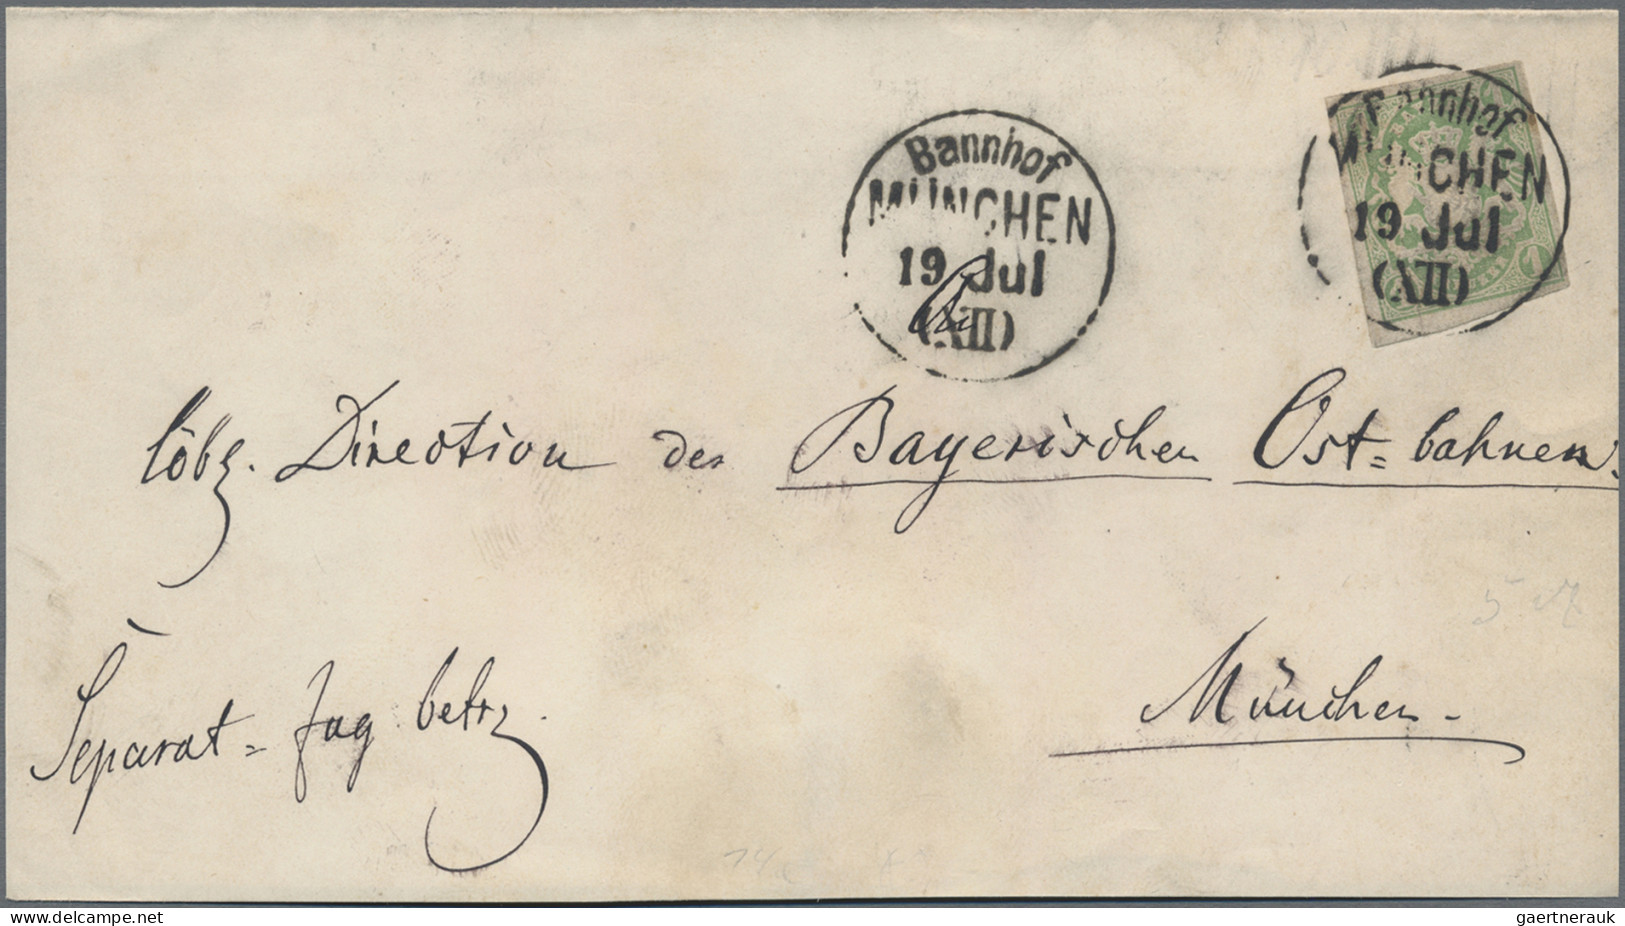 Bahnhof
MÜNCHEN
19 Jul
(XII)
Bahnhof
MÜNCHEN
19 Jul
(XII)
BAYERN
1
An
löbl. Direction der Bayerischen Ost=bahnen.
Separat=Zug betr.
München.
delcampe.net
gaertnerauk